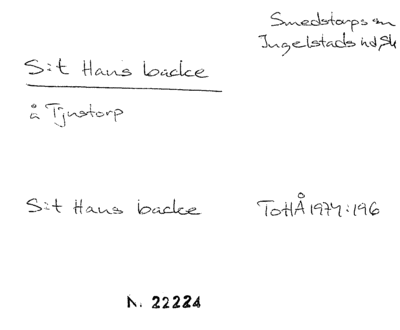 Smedstorps sn
Ingelstads hd, Sk
S:t Hans backe
å Tjustorp
S:t Hans backe ToHÅ 1974:196
N. 22224